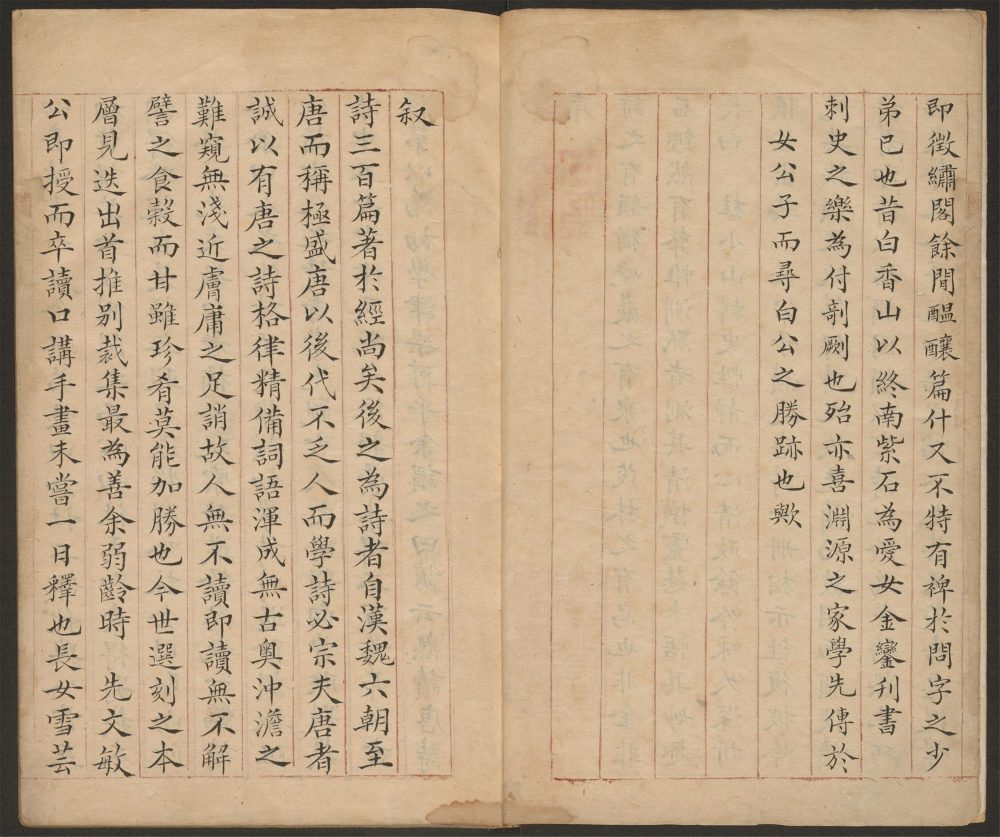 即徵繡閣餘閒醞釀篇什又不特有裨於問字之少
弟已也昔白香山以終南紫石為愛女金鑾刊書
刺史之樂為付剞劂也殆亦喜淵源之家學先傳於
女公子而尋白公之勝跡也歟
叙
詩三百篇著於經尚矣後之為詩者自漢魏六朝至
唐而稱極盛唐以後代不乏人而學詩必宗夫唐者
誠以有唐之詩格律精備詞語渾成無古奧沖澹之
難窺無淺近膚庸之足誚故人無不讀即讀無不解
譬之食穀而甘雖珍肴莫能加勝也今世選刻之本
層見迭出首推別裁集最為善余弱齡時 先文敏
公即授而卒讀口講手畫未嘗一日釋也長女雪芸